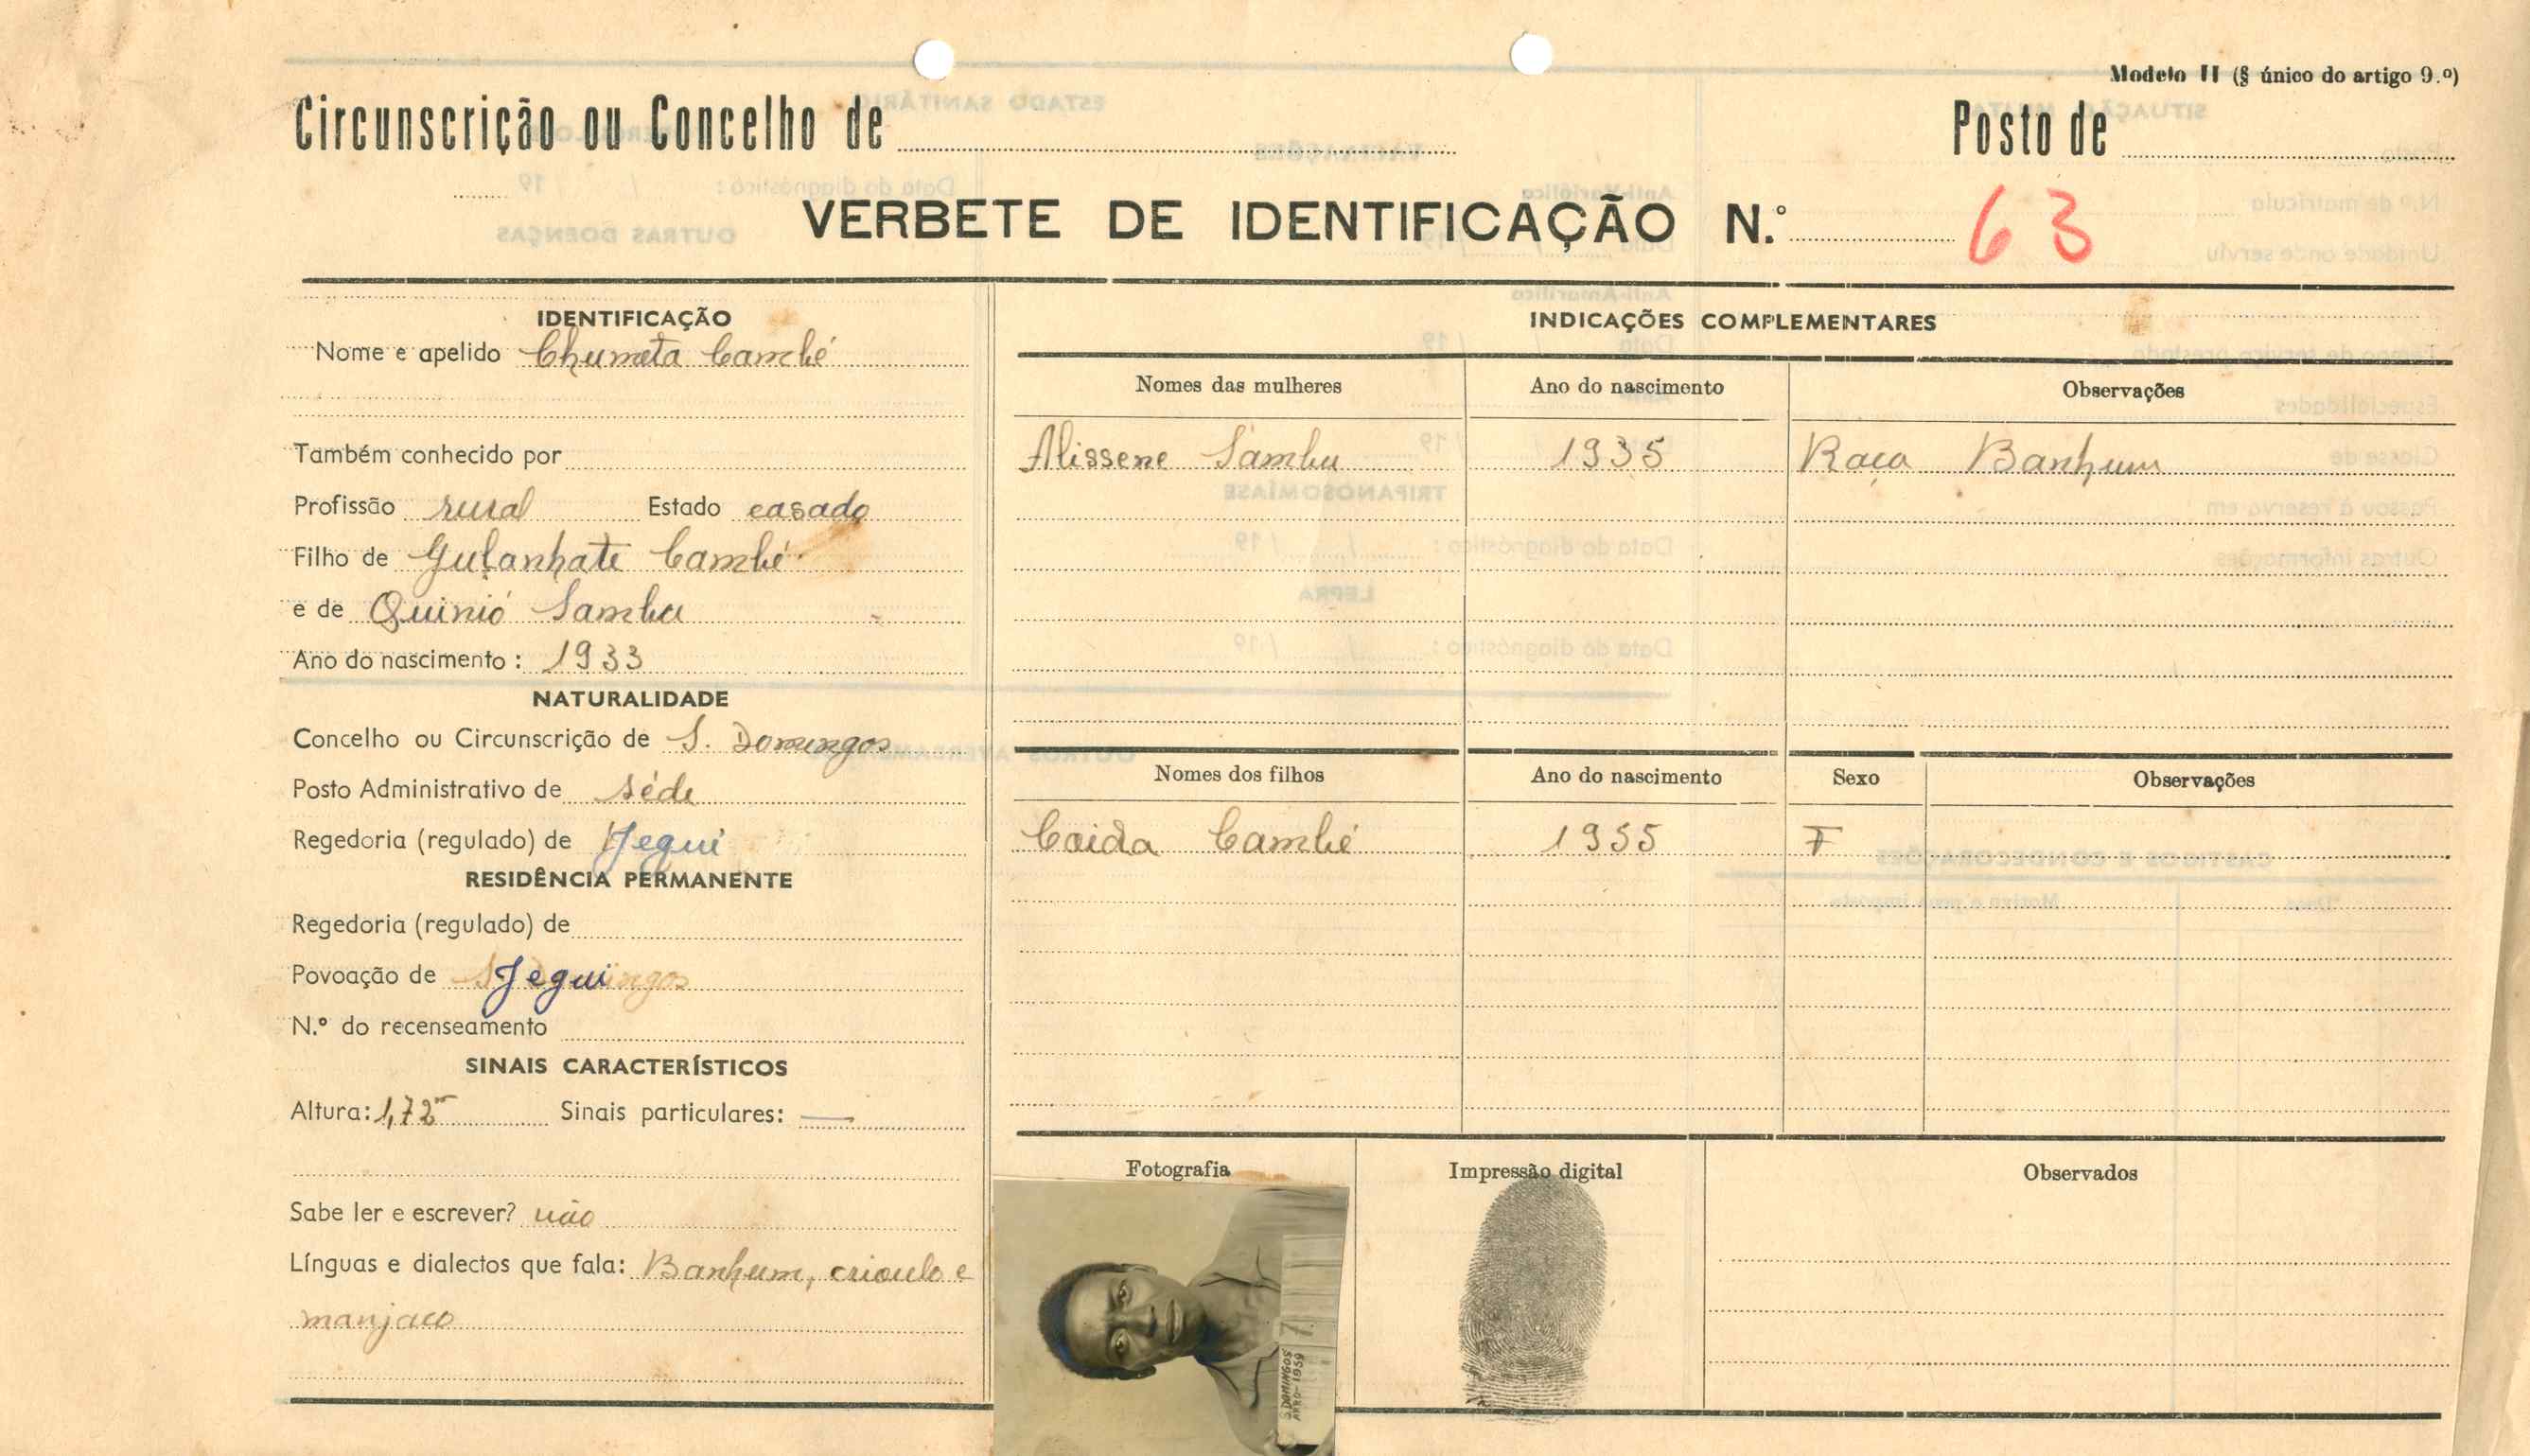 Modelo II (§ único do artigo 9.º)
Circunscrição ou Concelho de
Posto de
VERBETE DE IDENTIFICAÇÃO N.º 63
IDENTIFICAÇÃO
Nome e apelido Chumeta Cambé
Também conhecido por
Profissão rural Estado casado
Filho de Gulanhate Cambé
e de Quinió Sambu
Ano do nascimento: 1933
NATURALIDADE
Concelho ou Circunscrição de S. Domingos
Posto Administrativo de séde
Regedoria (regulado) de Jegui
RESIDÊNCIA PERMANENTE
Regedoria (regulado) de
Povoação de Jegui
N.º do recenseamento
SINAIS CARACTERÍSTICOS
Altura: 1,72m Sinais particulares: —
Sabe ler e escrever? não
Línguas e dialectos que fala: Banhum, crioulo e
manjaco
INDICAÇÕES COMPLEMENTARES
Nomes das mulheres Ano do nascimento Observações
Alissene Sambu 1935 Raça Banhum
Nomes dos filhos Ano do nascimento Sexo Observações
Caida Cambé 1955 F
Fotografia Impressão digital Observados
7
S. DOMINGOS
ANO-1959